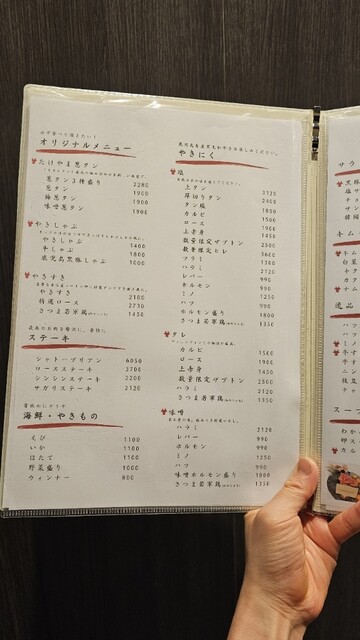 オリジナルメニュー
たけやま葱タン
葱タン3種盛り 2280
葱タン 1900
極葱タン 1900
味噌葱タン 1900
やきしゃぶ
やきしゃぶ 1400
牛しゃぶ 1800
鹿児島黒豚しゃぶ 1000
やきすき
やきすき 2100
特選ロース 2750
さつま若軍鶏 1450
ステーキ
シャトーブリアン 6050
ロースステーキ 3700
シンシンステーキ 2200
サガリステーキ 2120
海鮮・やきもの
えび 1100
いか 1100
ほたて 1100
野菜盛り 1000
ウィンナー 800
やきにく
塩
上タン 3120
厚切りタン 2400
タン塩 1800
カルビ 1500
ロース 1900
上赤身 1450
数量限定ザブトン 2500
数量限定ヒレ 3600
ツラミ 1100
ハラミ 2120
レバー 990
ホルモン 990
ミノ 1250
ハツ 990
ホルモン盛り 1800
さつま若軍鶏 1350
タレ
カルビ 1500
ロース 1900
上赤身 1450
数量限定ザブトン 2500
ハラミ 2120
さつま若軍鶏 1350
味噌
ハラミ 2120
レバー 990
ホルモン 990
ミノ 1250
ハツ 990
味噌ホルモン盛り 1800
さつま若軍鶏 1350
サラ
キム
逸品
スー